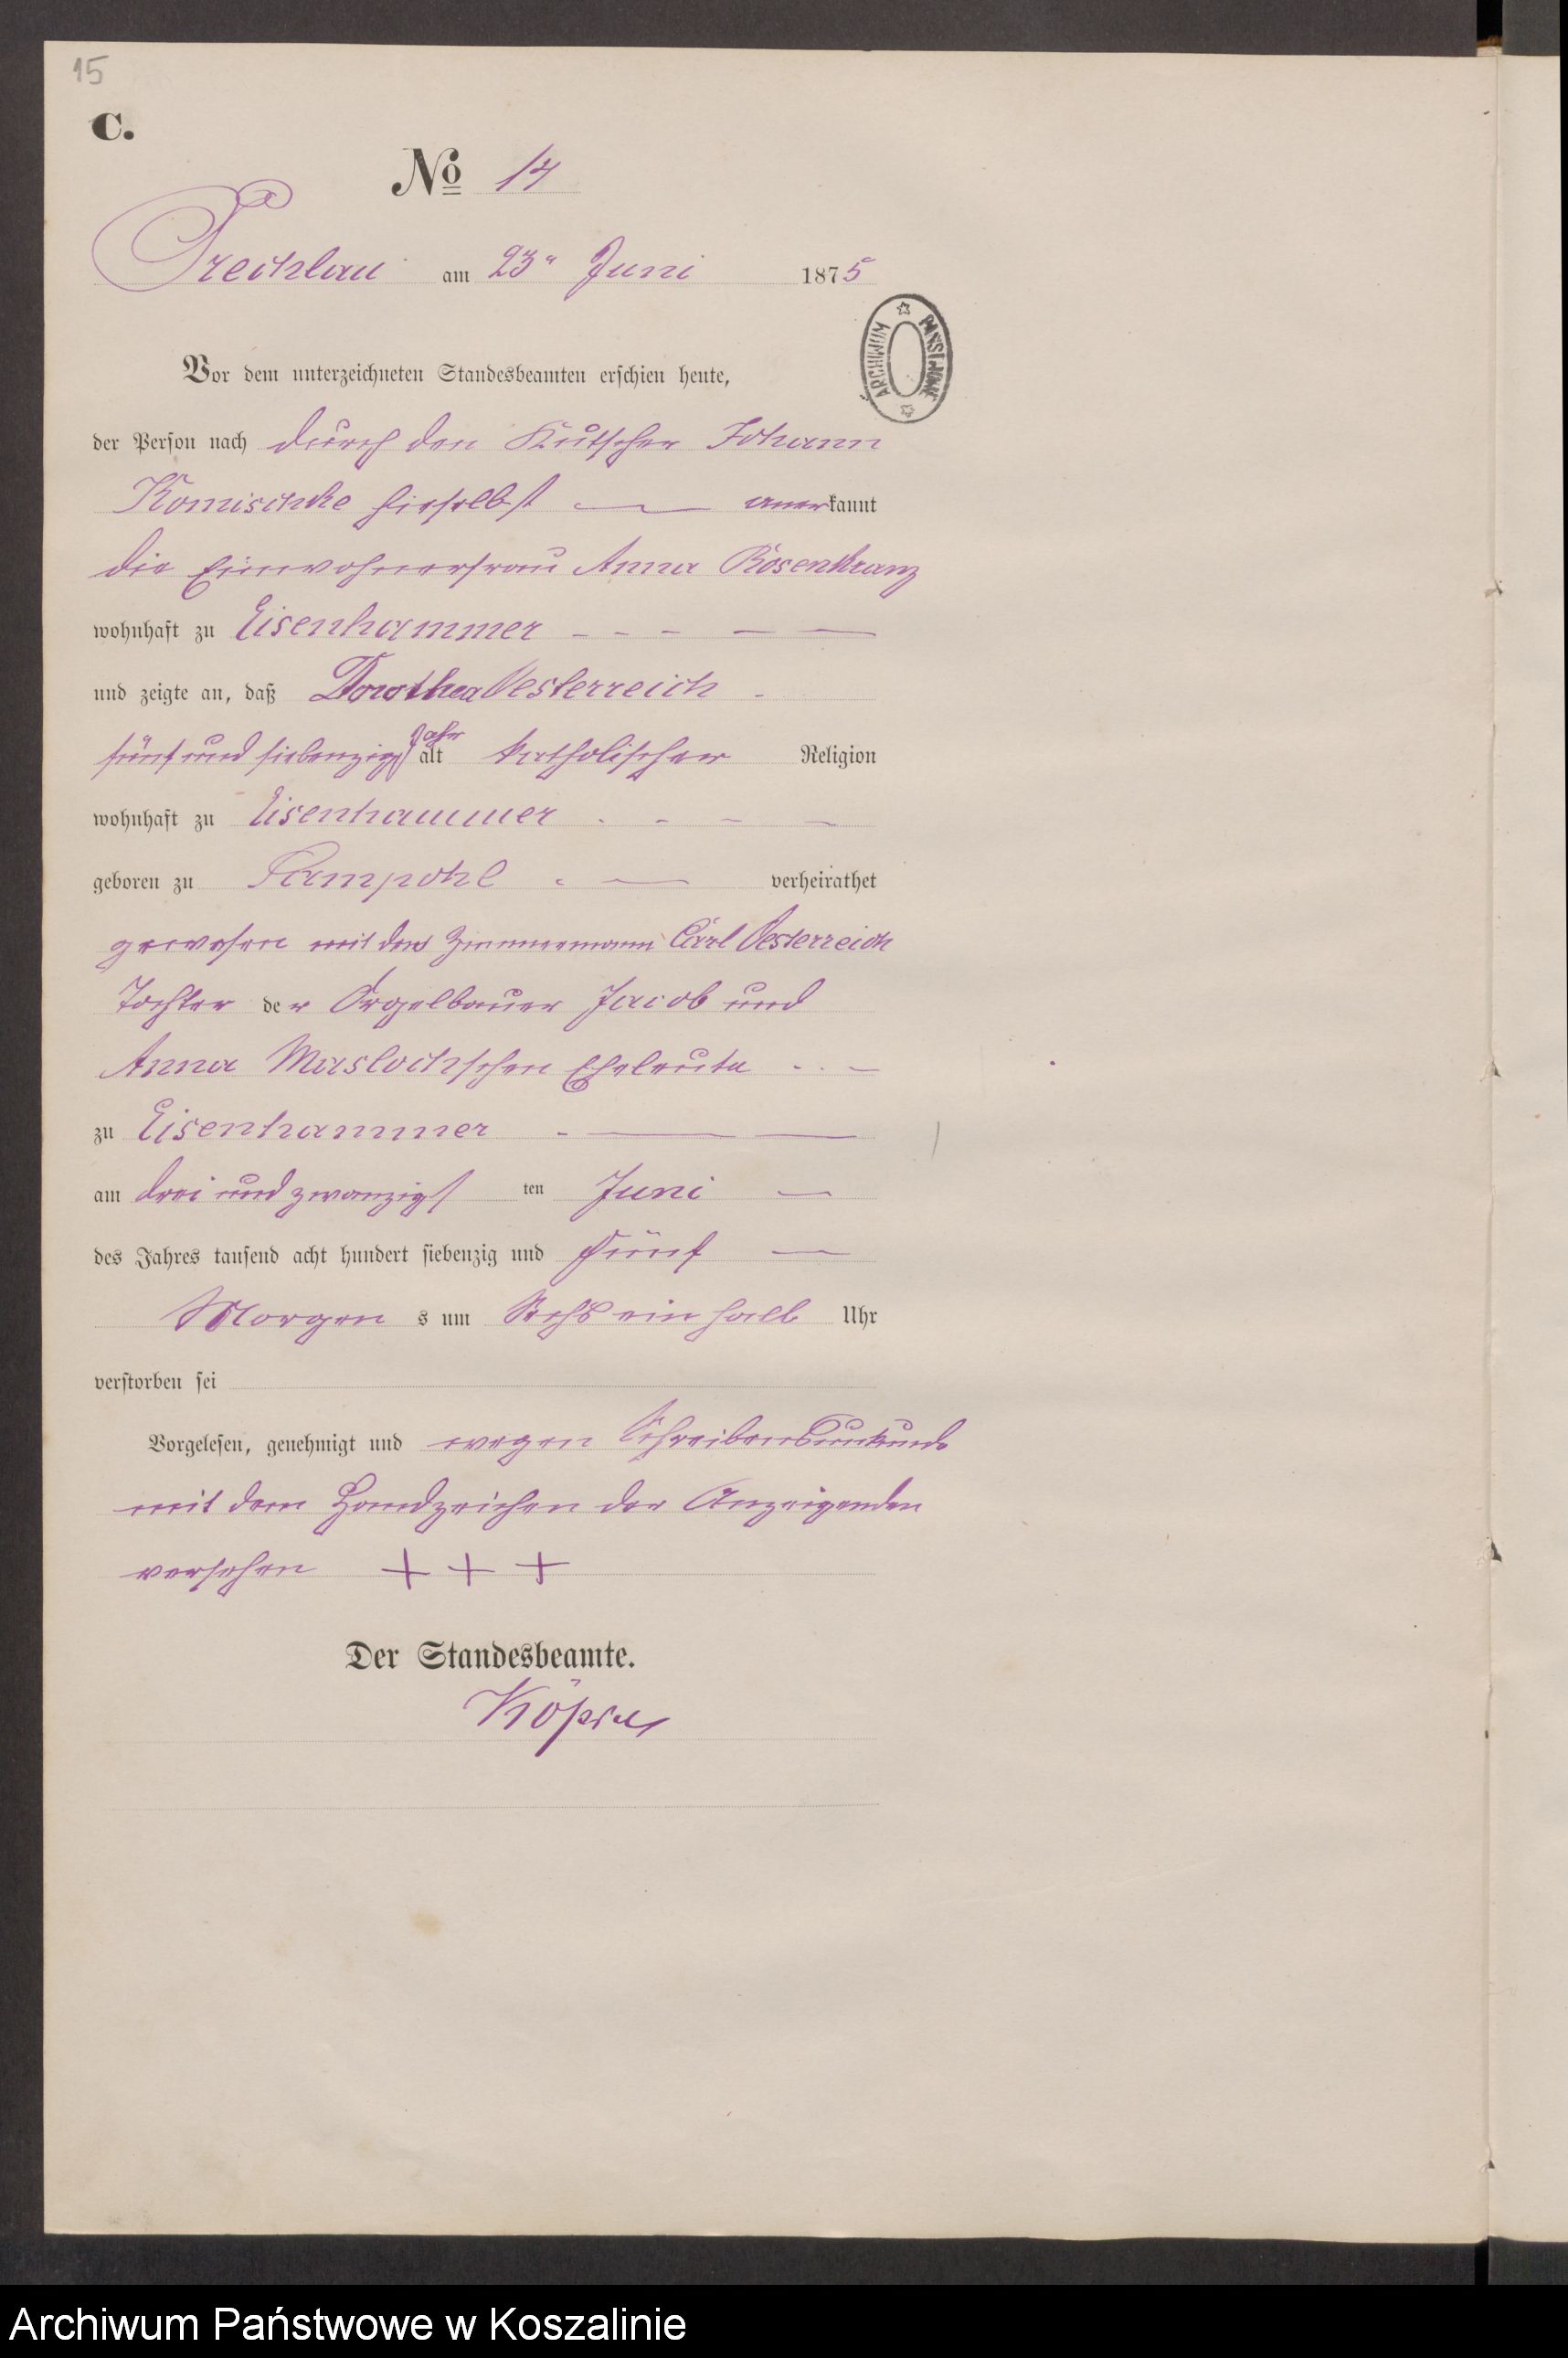 15
C.
No 14
Prechlau am 23" Juni 1875
ARCHIWUM PAŃSTWOWE
Vor dem unterzeichneten Standesbeamten erschien heute,
der Person nach durch den Kutscher Johann
Komischke hierselbst — anerkannt
die Einwohnerfrau Anna Rosenkranz
wohnhaft zu Eisenhammer - - - — —
und zeigte an, daß Dorothea Oesterreich -
fünf und siebenzig Jahr alt katholischer Religion
wohnhaft zu Eisenhammer - - - —
geboren zu Pampohl - — verheirathet
gewesen mit dem Zimmermann Carl Oesterreich
Tochter der Orgelbauer Jacob und
Anna Maslochschen Eheleute - - —
zu Eisenhammer - — —
am drei und zwanzigsten Juni —
des Jahres tausend acht hundert siebenzig und fünf —
Morgens um Sechs ein halb Uhr
verstorben sei
Vorgelesen, genehmigt und wegen Schreibensunkunde
mit dem Handzeichen der Anzeigenden
versehen + + +
Der Standesbeamte.
Archiwum Państwowe w Koszalinie